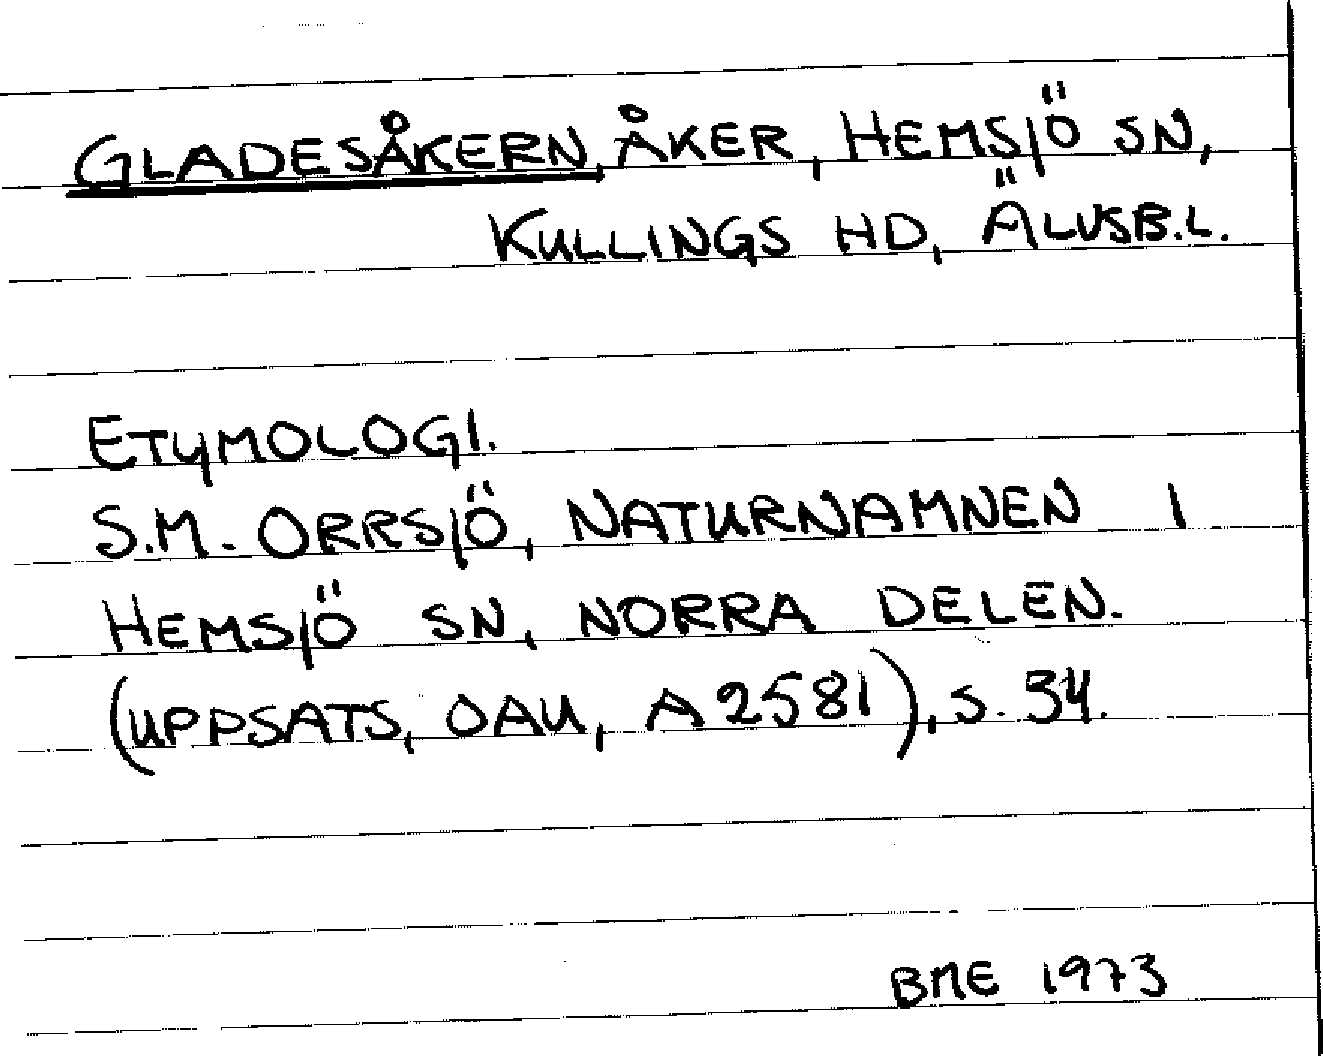 GLADESÅKERN, ÅKER, HEMSJÖ SN,
KULLINGS HD, ÄLVSB.L.
ETYMOLOGI.
S.M. ORRSJÖ, NATURNAMNEN I
HEMSJÖ SN, NORRA DELEN.
(UPPSATS, OAU, A 2581), S. 34.
BME 1973